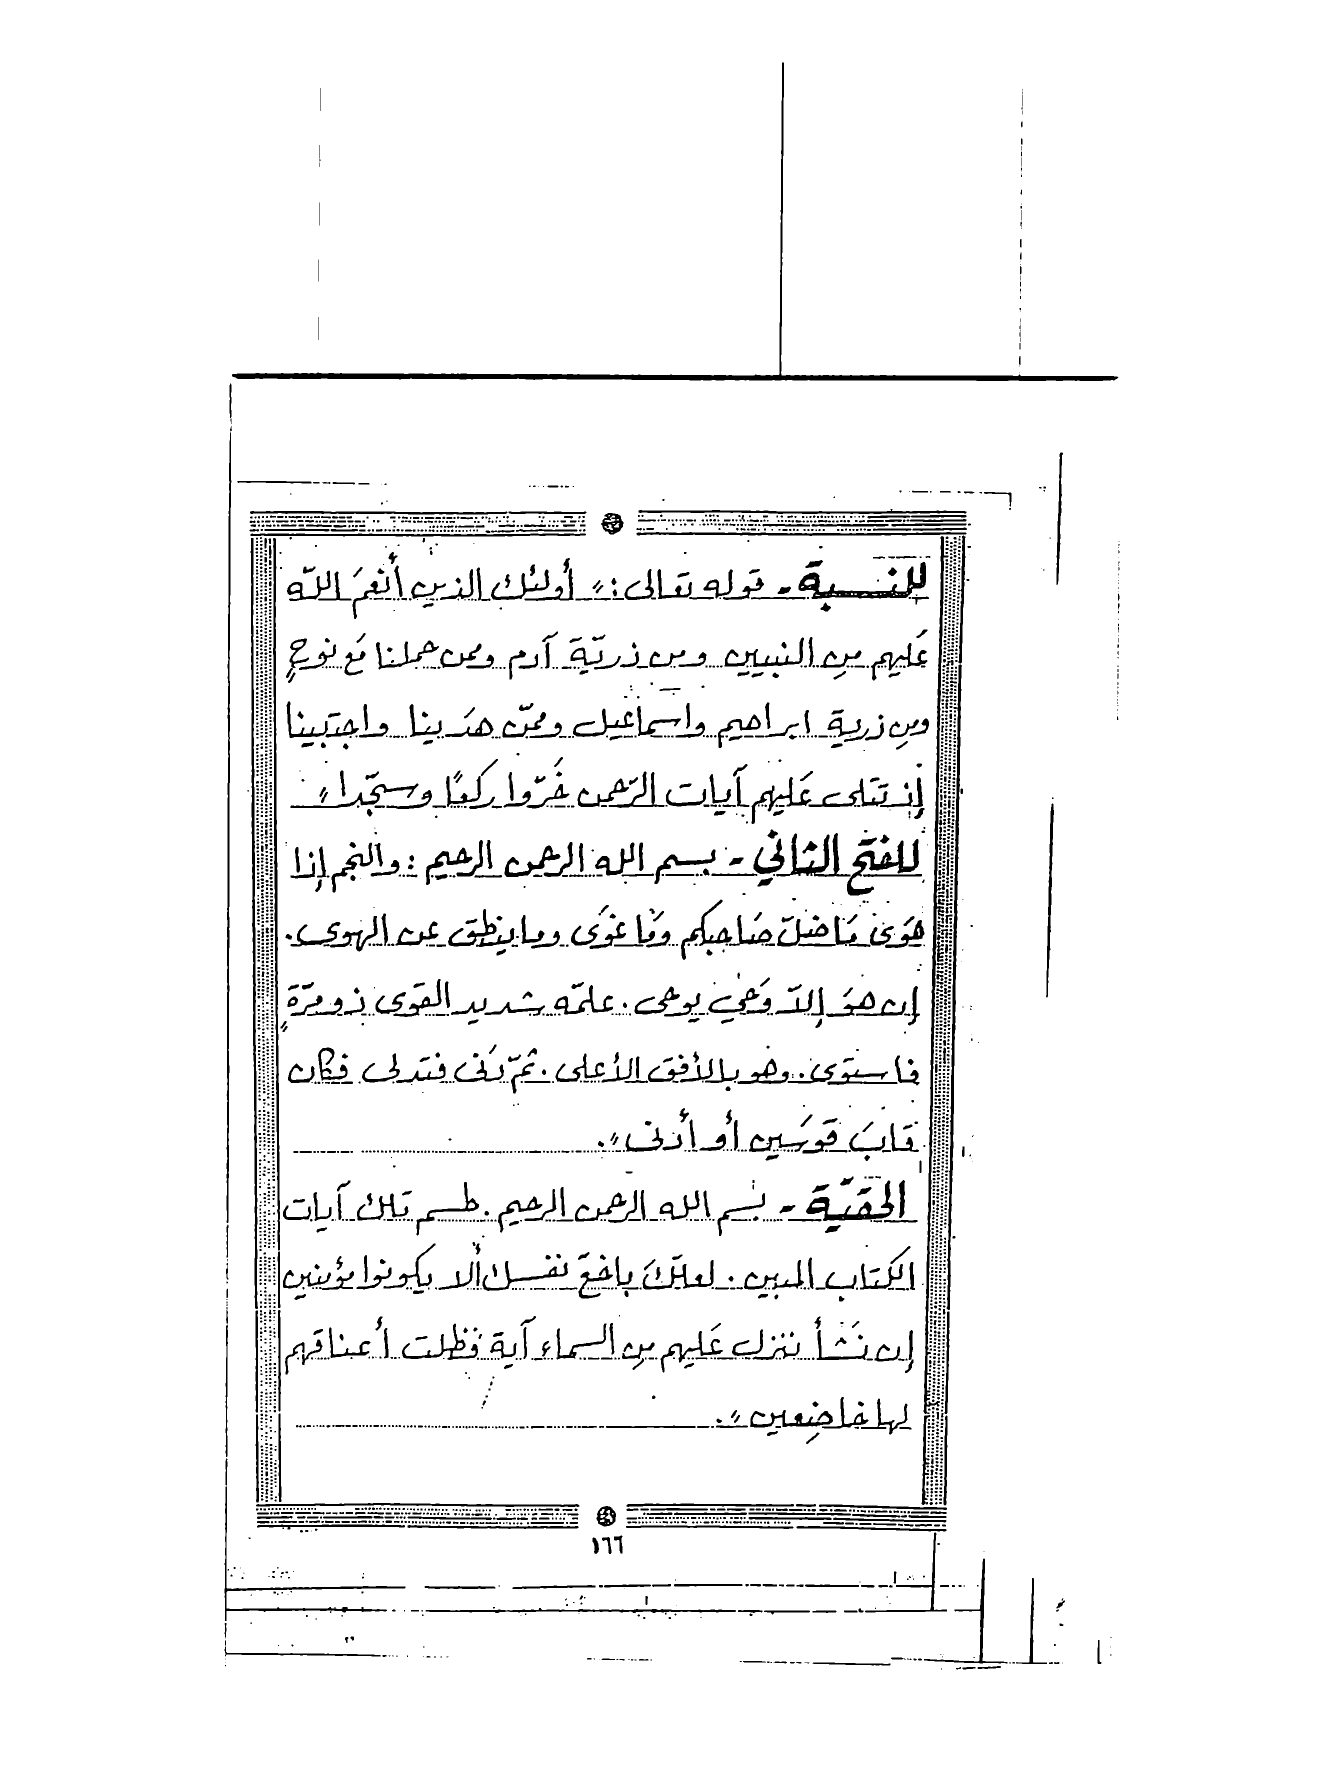 للنسبة - قوله تعالى: " أولئك الذين أنعمَ اللّه
عَليهم مِن النبيين ومن ذريّة آدم وممن حملنا مَع نوحٍ
ومِن ذرية ابراهيم واسماعيل وممّن هدَينا واجتبينا
إذ تتلى عَليهم آيات الرّحمن خَرّوا ركعًا وسجّدا "
للفتح الثاني - بسم الله الرحمن الرحيم : والنجم إذا
هَوَى مَا ضلّ صَاحبكم ومَا غوَى وما ينطق عن الهوى.
إن هوَ إلاّ وَحي يوحى . علمّه شديد القوى ذو مرّةٍ
فاستوى . وهو بالأفق الأعلى . ثمّ دَنى فتدلى فكان
قابَ قوسَين أو أدنى ".
الحقيّة - بسم الله الرحمن الرحيم . طسم تلك آيات
الكتاب المبين . لعلّكَ باخعٌ نفسك ألا يكونوا مؤمنين
إن نَشأ ننزل عَليهم مِن السماء آية فظلت أعناقهم
لها خاضِعين ".
١٦٦